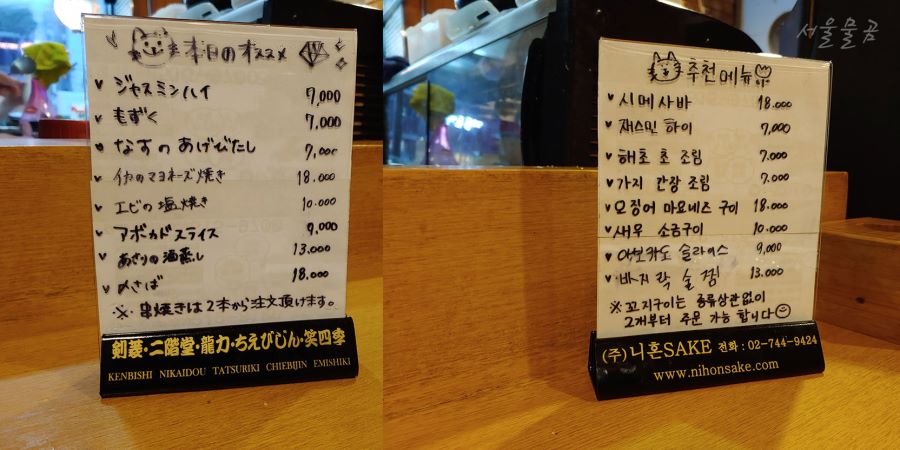 本日のオススメ
ジャスミンハイ 7,000
もずく 7,000
なすのあげびたし 7,000
イカのマヨネーズ焼き 18.000
エビの塩焼き 10.000
アボカドスライス 9,000
あさりの酒蒸し 13.000
〆さば 18.000
※・串焼きは2本から注文頂けます。
剣菱・二階堂・龍力・ちえびじん・笑四季
KENBISHI NIKAIDOU TATSURIKI CHIEBIJIN EMISHIKI
서울물곰
추천메뉴
시메사바 18.000
재스민 하이 7,000
해초 초 조림 7.000
가지 간장 조림 7.000
오징어 마요네즈 구이 18.000
새우 소금구이 10.000
아보카도 슬라이스 9,000
바지락 술찜 13.000
※ 꼬지구이는 종류상관없이
2개부터 주문 가능 합니다
(주)니혼SAKE 전화 : 02-744-9424
www.nihonsake.com